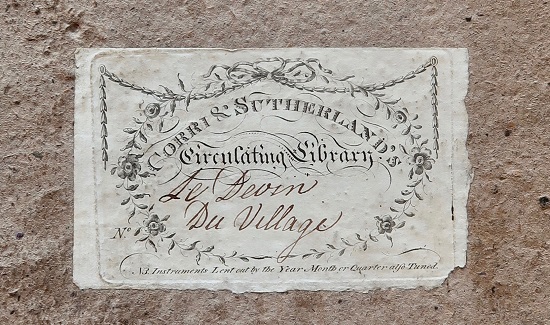 CORRI & SUTHERLANDS
Circulating Library
Le Devin
Du Village
No.
NB. Instruments Lent out by the Year Month or Quarter alſo Tuned.